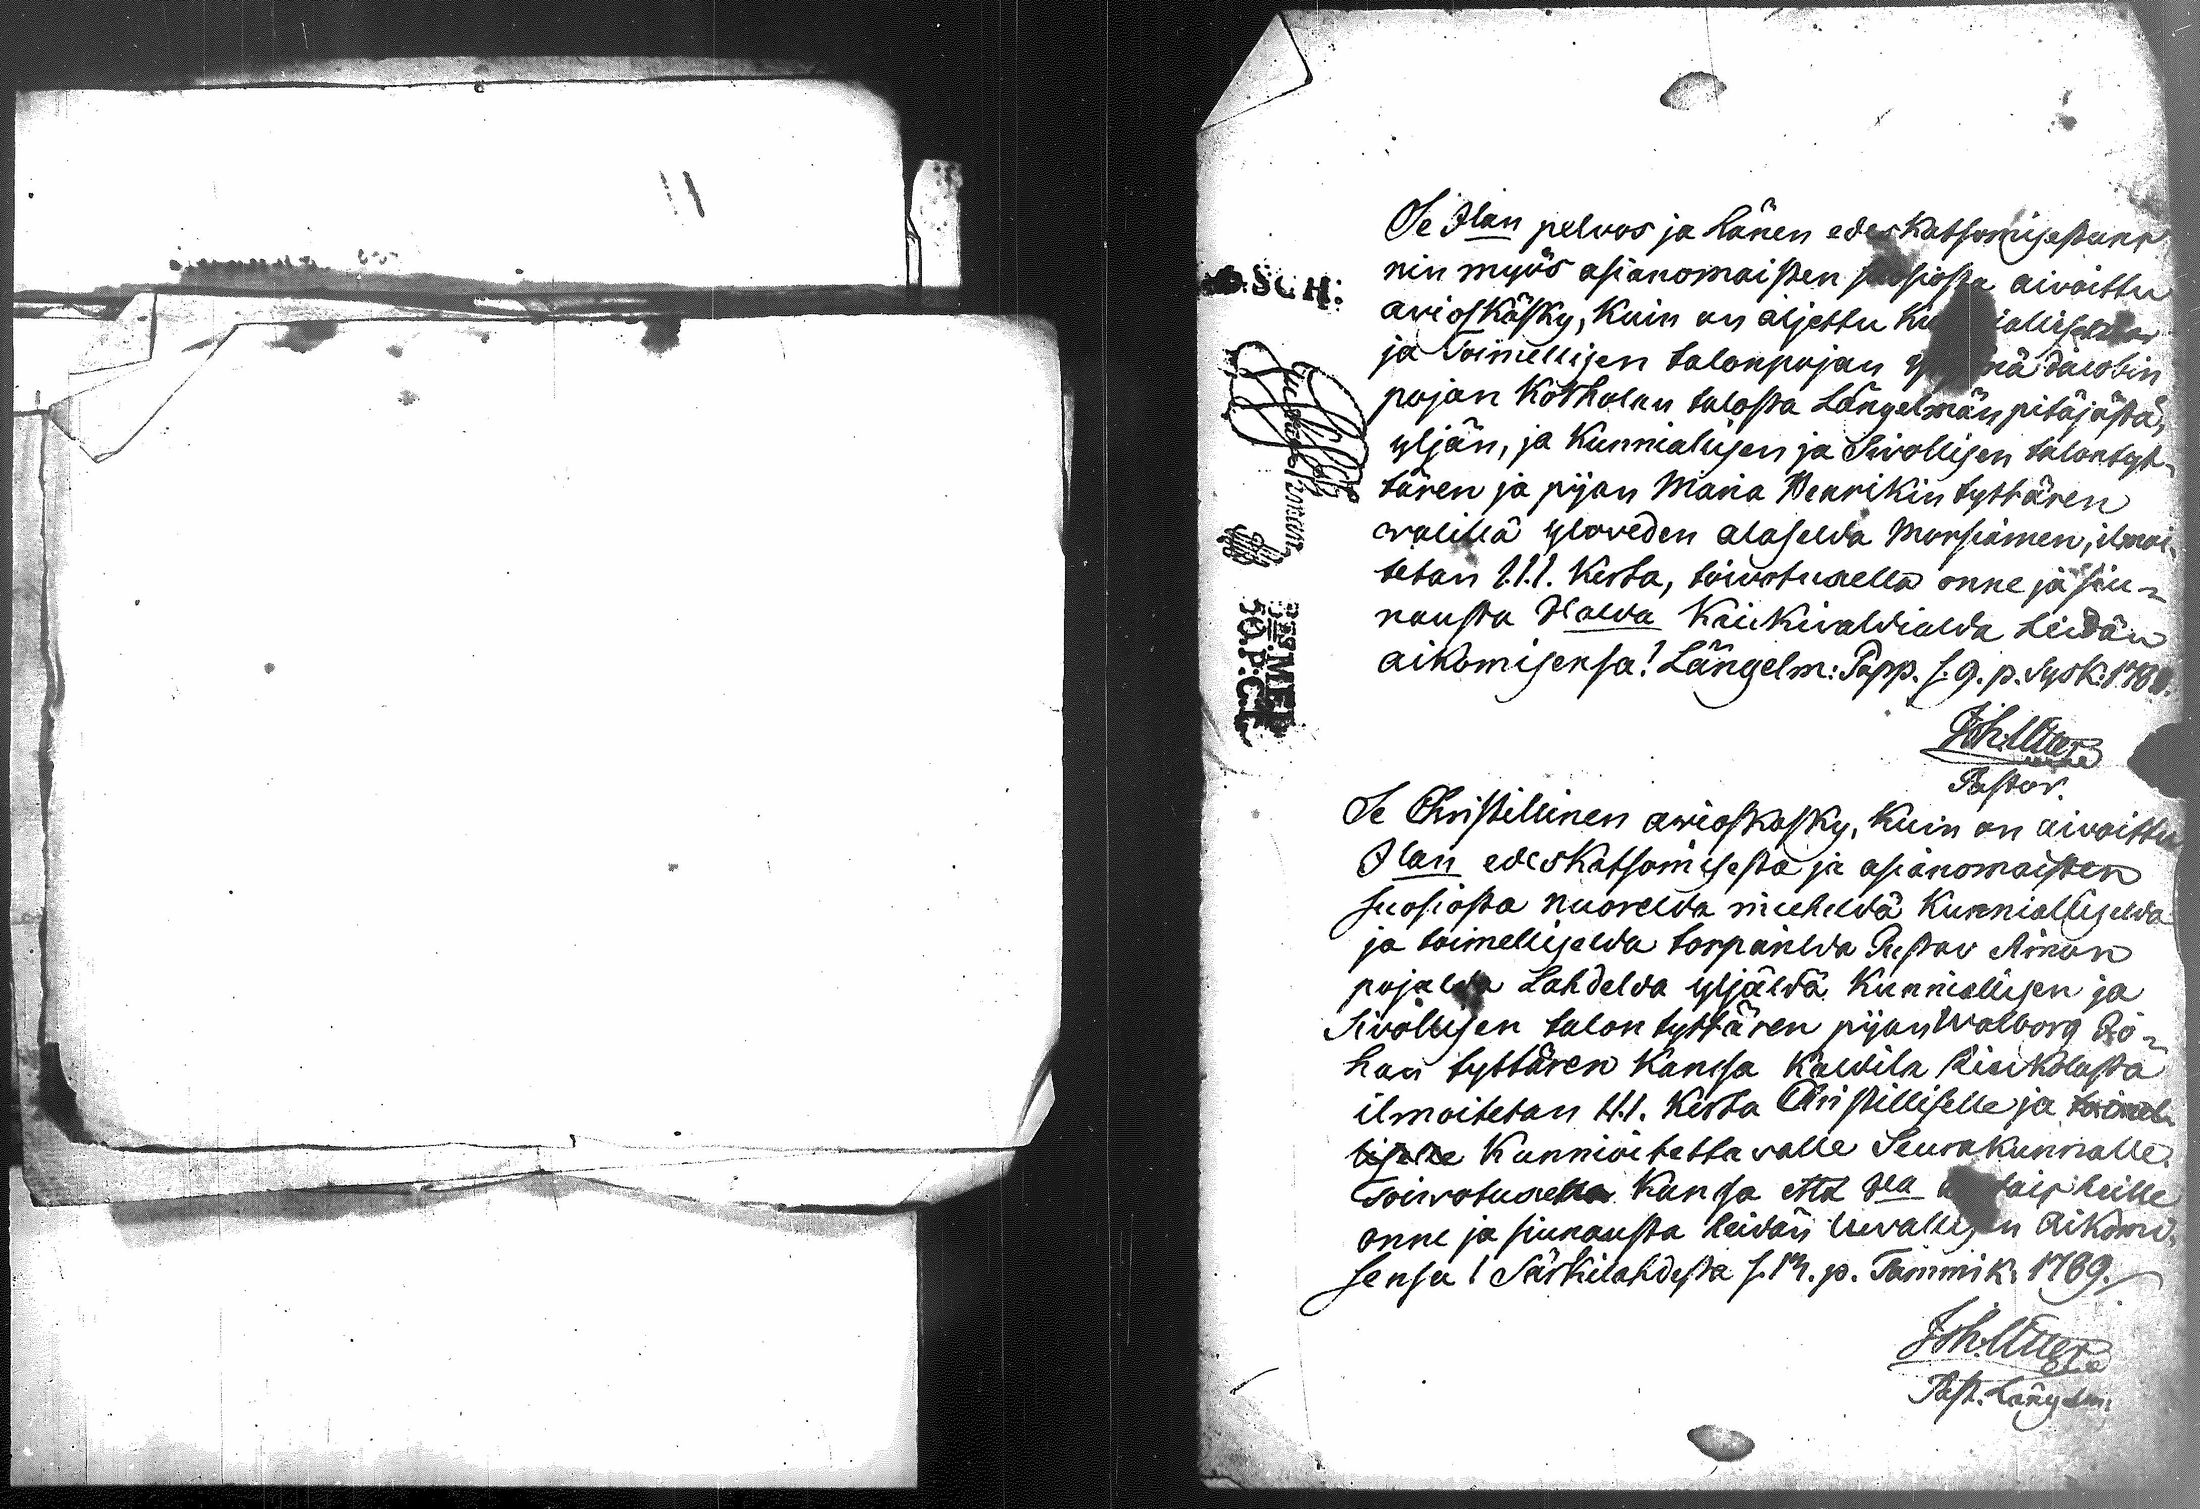 Se Jlan pelvos ja hänen edeskatsomisestans
nin myös asianomaisten suosiosta aivoittu
avioskäsky, kuin on äljettu
ja Toimellisen talonpojan Jacobin
pojan talosta Längelmän pitäjästä,
yljän, ja Kunniallisen ja Sivollisen talontyt-
tären ja pijan Maria Henrikin tyttären
välillä ylöveden alaselda Morsiamen, ilmoi-
tetan 1.1.1. Kerta, toivotuxella onne ja siu-
nausta Jlalda Kaikivaldialda heidän
aikomisensa! Längelm: Papp. s. 9. p. Sysk:
Joh. Utter
Pastor.
Se Christillinen avioskäsky, Kuin on aivoittu
Jlan edeskatsomisesta ja asianomaisten
suosiosta nuorelda mieheldä Kunnialliselda
ja toimelliselda torparilda Gustav Simon
pojalda Lahdelda yljäldä Kunniallisen ja
Sivollisen talon tyttären pijan Walborg Jo-
han tyttären Kansa Kaldila
ilmoitetan 1.1.1. Kerta Christilliselle ja toimel-
liselle Kunnioitettavalle Seurakunnalle.
Toivotuxella Kansa että Jla heille
onne ja siunausta heidän luvallisen Aikomi-
sensa! Särkilahdesta s. 17. p. Tammik: 1769.
Joh. Utter
Past. Längelm:
SCH:
50.P:C: